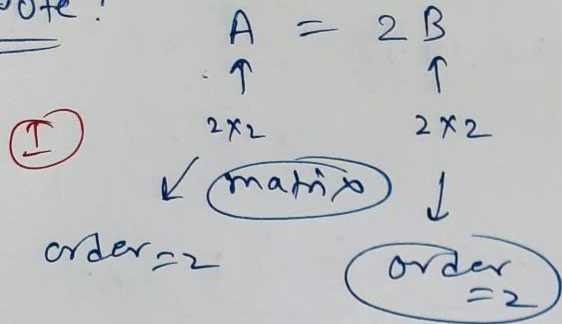 Note:
A = 2B
↑ ↑
I 2×2 2×2
↙ matrix ↓
order=2 order
=2